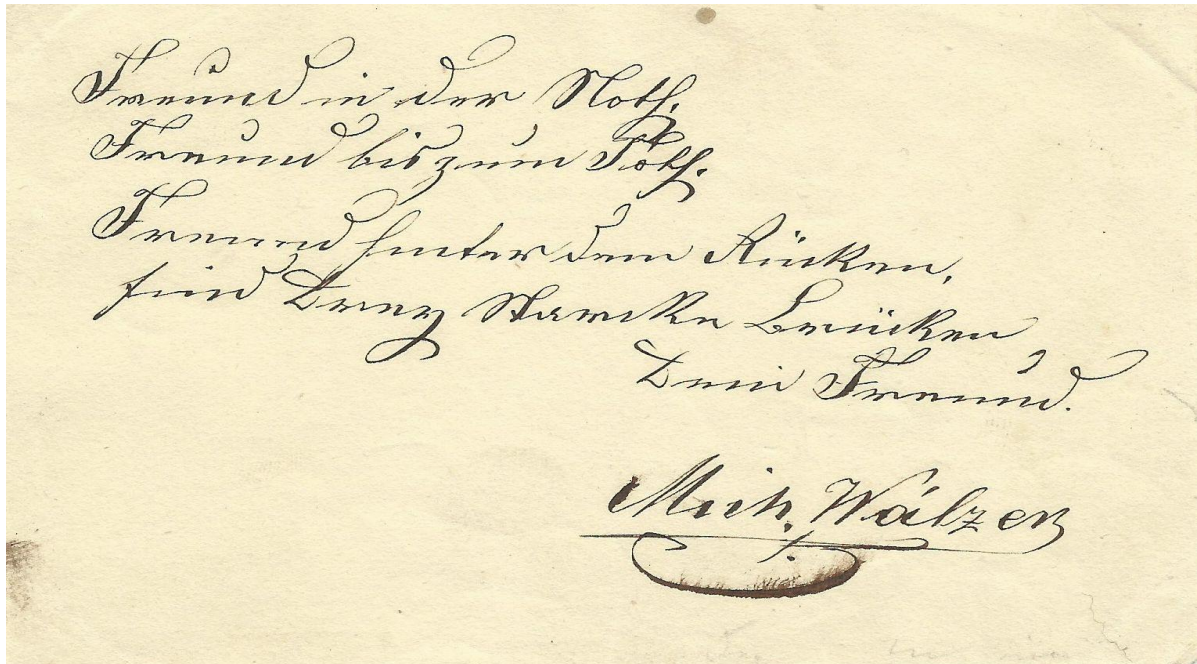 Freund in der Noth.
Freund bis zum Toth.
Freund hinter dem Rücken,
sind Drey Starcke Brücken,
Dein Freund.
Mich. Wälzer